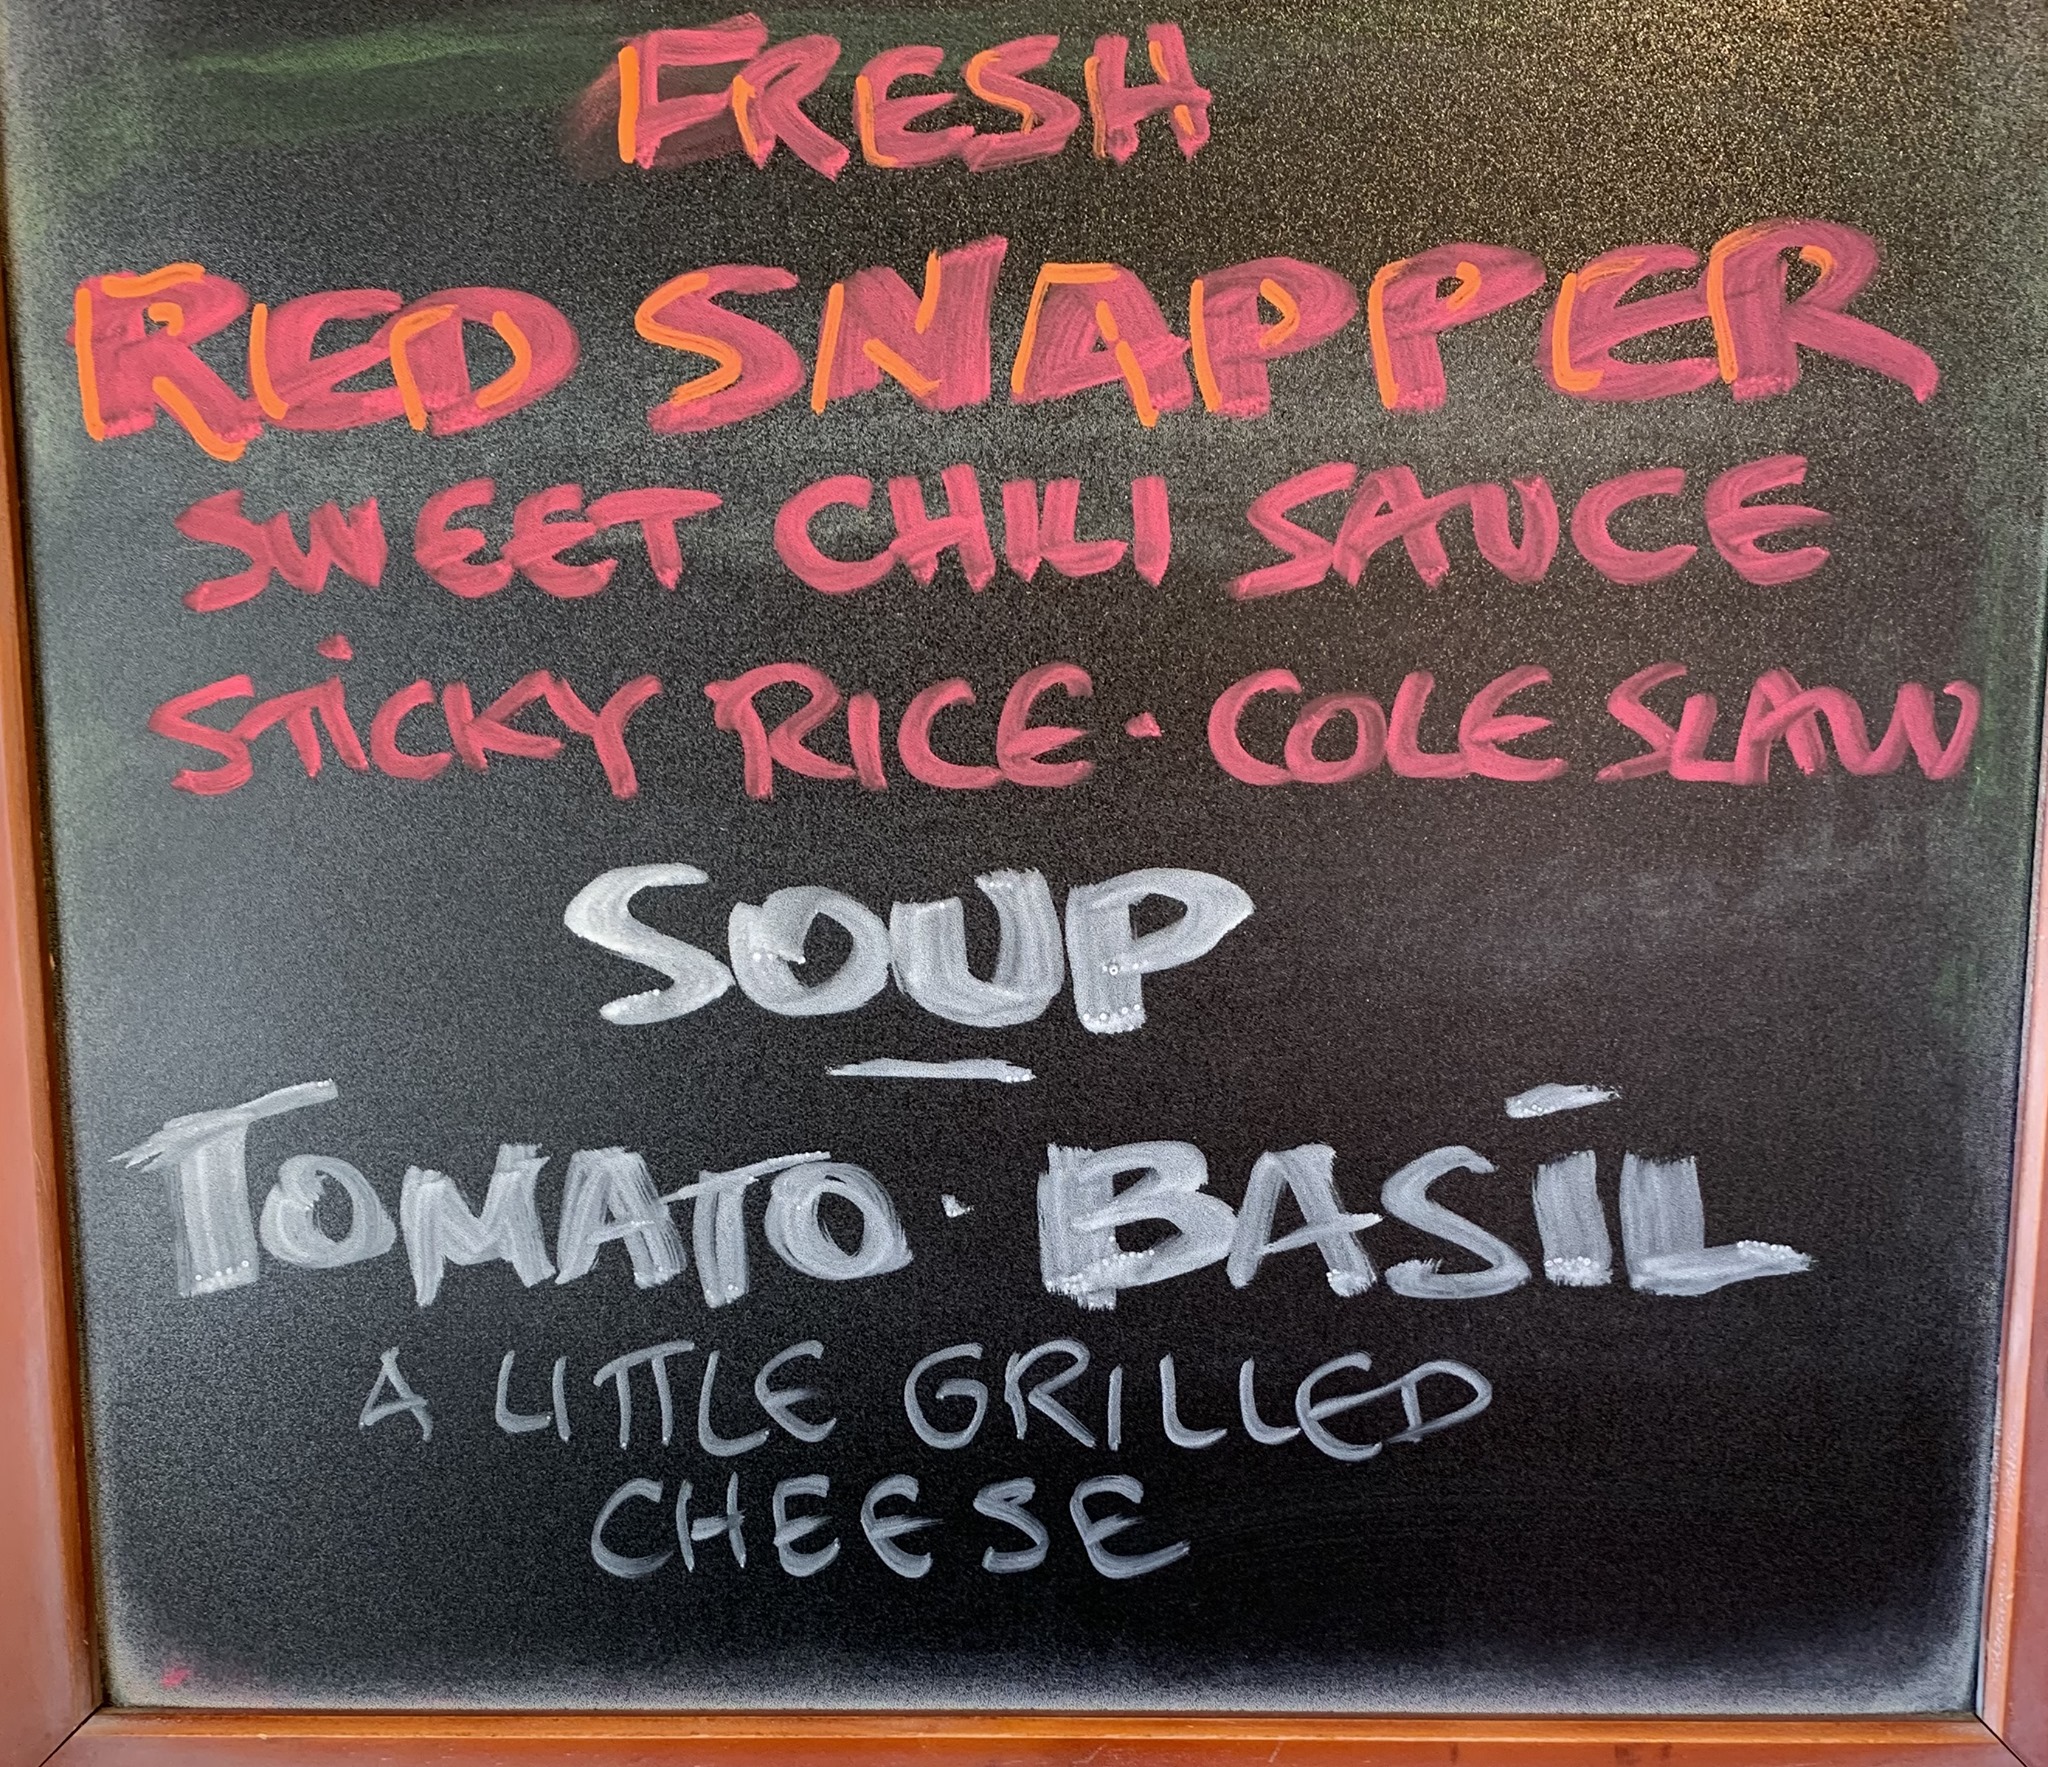 FRESH
RED SNAPPER
SWEET CHILI SAUCE
STICKY RICE · COLE SLAW
SOUP
TOMATO · BASIL
A LITTLE GRILLED
CHEESE